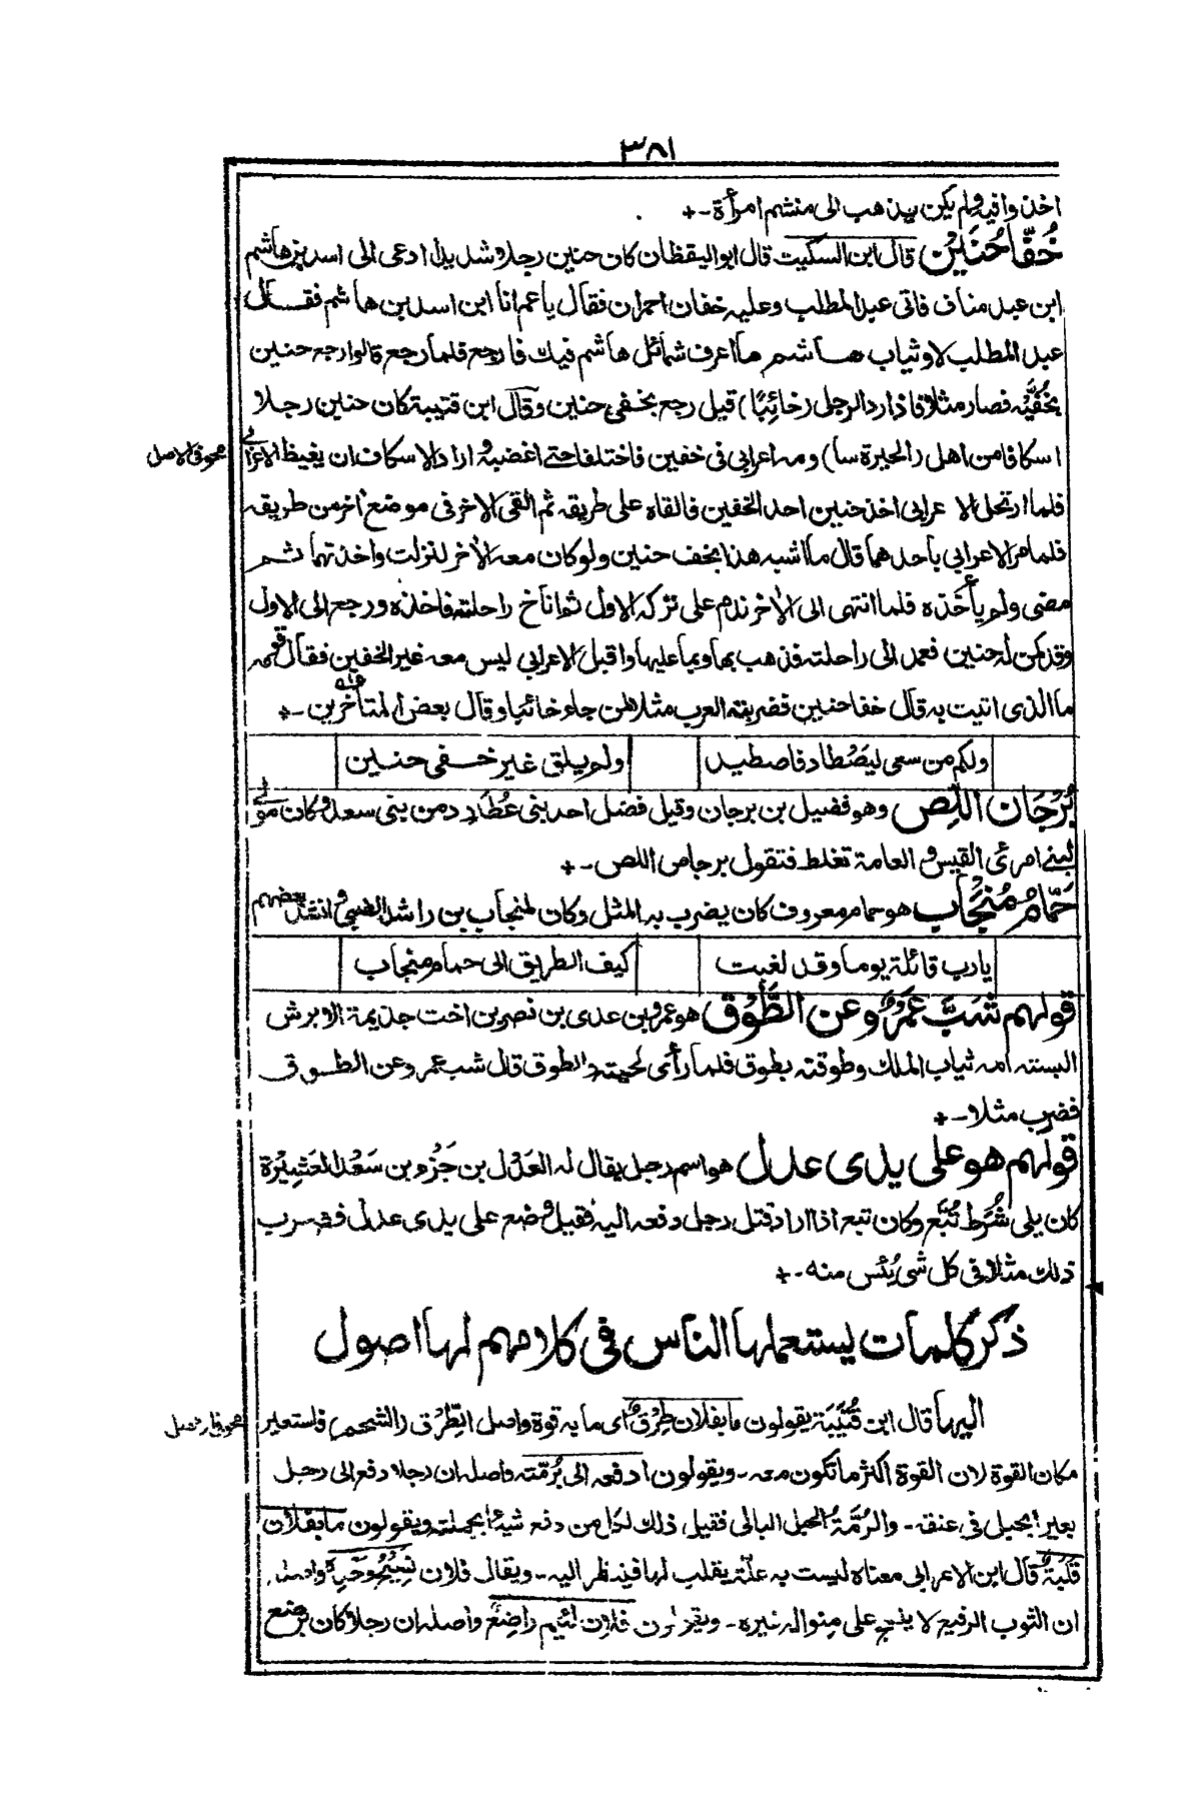 ٣٨١
اخذوا فيه ولم يكن يذهب الى منشم امرأة -+
خُفَّا حُنَيْن قال ابن السكيت قال ابو اليقظان كان حنين رجلا شديدا ادعى الى اسد بن هاشم
ابن عبد مناف فاتى عبد المطلب وعليه خفان احمران فقال يا عم انا ابن اسد بن هاشم فقال
عبد المطلب لا وثياب هاشم ما اعرف شمائل هاشم فيك فارجع فلما رجع قالوا رجع حنين
بخُفَّيْه فصار مثلا فاذا رد الرجل (خائِبًا) قيل رجع بخفى حنين وقال ابن قتيبة كان حنين رجلا
اسكافا من اهل (الحيرة سا) ومه اعرابى فى خفين فاختلفا حتى اغضبه و اراد الاسكاف ان يغيظ الاعرابى
محو فى الاصل
فلما ارتحل الاعرابى اخذ حنين احد الخفين فالقاه على طريقه ثم القى الاخر فى موضع آخر من طريقه
فلما مر الاعرابى باحدهما قال ما اشبه هذا بخف حنين ولو كان معه الآخر لنزلت واخذتهما ثم
مضى ولم يأخذه فلما انتهى الى الآخر ندم على تركه الاول ثم اناخ راحلته فاخذه ورجع الى الاول
وقد كمن له حنين فعمد الى راحلته فذهب بها وبما عليها واقبل الاعرابى ليس معه غير الخفين فقال قومه
ما الذى اتيت به قال خفا حنين فضربته العرب مثلا لمن جاء خائبا وقال بعض المتأخرين -+
ولكم من سعى ليَصْطاد فاصطيد ولم يلق غير خفى حنين
بُرْجَان اللِّص وهو فضيل بن برجان وقيل فضل احد بنى عُطَارِد من بنى سعد وكان مولى
لبنى امرئ القيس و العامة تغلط فتقول برجاص اللص -+
حَمَّامُ مُنْجَاب هو حمام معروف كان يضرب به المثل وكان لمنجاب بن راشد الضبى و انشد بعضهم
يا رب قائلة يوما وقد لغبت كيف الطريق الى حمام منجاب
قولهم شَبَّ عَمْرٌو عن الطَّوْق هو عمرو بن عدى بن نصر بن اخت جذيمة الابرش
البسته امه ثياب الملك وطوقته بطوق فلما رأى لحيته والطوق قال شب عمرو عن الطوق
فضرب مثلا -+
قولهم هو على يدى عدل هو اسم رجل يقال له العَدْل بن جَزْء بن سَعْد العَشِيْرة
كان يلى شُرَط تُبَّع وكان تبع اذا اراد قتل رجل دفعه اليه فقيل وضع على يدى عدل فضرب
ذلك مثلا فى كل شئ يُئِس منه -+
ذكر كلمات يستعملها الناس فى كلامهم لها اصول
اليها قال ابن قُتَيْبَة يقولون ما بفلان طِرْقٌ اى ما به قوة واصل الطِّرْق (الشحم) فاستعير
مكان القوة لان القوة اكثر ما تكون معه - ويقولون ادفعه الى برُمّته واصله ان رجلا دفع الى رجل
بعيرا بحبل فى عنقه - والرُّمَّةُ الحبل البالى فقيل ذلك لكل من دفع شيئا بجملته ويقولون ما بفلان
قَلَبَةٌ قال ابن الاعرابى معناه ليست به علة يقلب لها فينظر اليه - ويقال فلان نَسِيْجُ وَحْدِه واصله
ان الثوب الرفيع لا ينسج على منواله غيره - ويقولون فلان لئيم راضِعٌ واصله ان رجلا كان يرضع